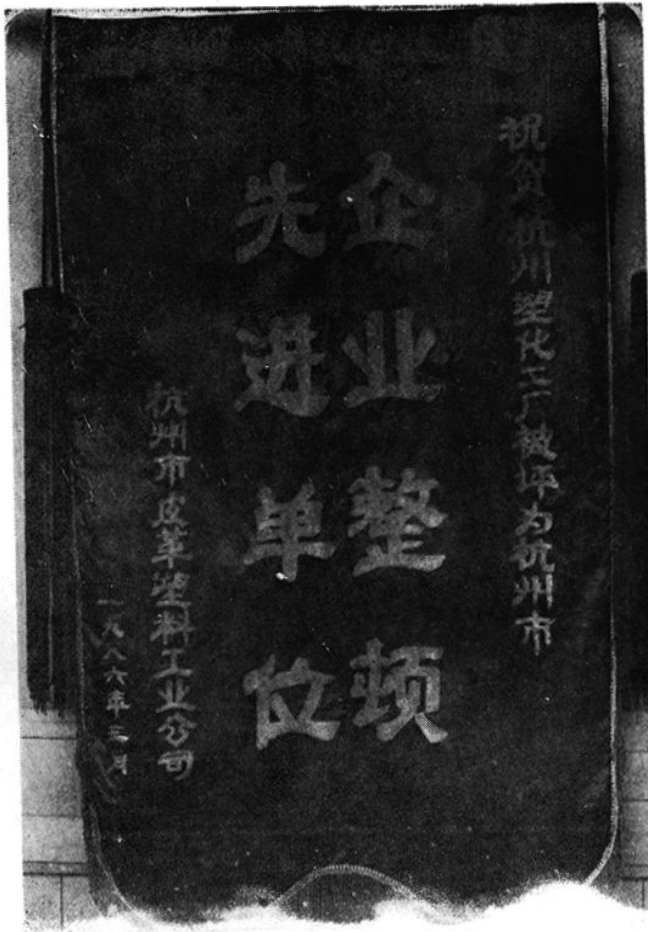 祝贺杭州塑化工厂被评为杭州市
企业整顿
先进单位
杭州市皮革塑料工业公司
一九八六年三月